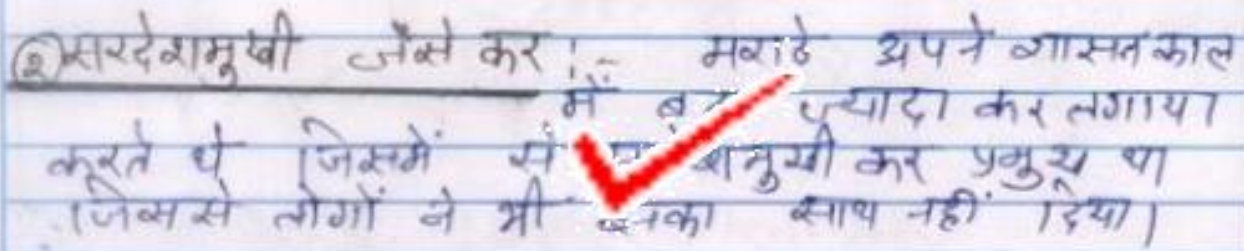 ② सरदेशमुखी जैसे कर :- मराठे अपने शासनकाल
में ज्यादा कर लगाया
करते थे जिसमें से कर प्रमुख था
जिससे लोगों ने भी उनका साथ नहीं दिया।